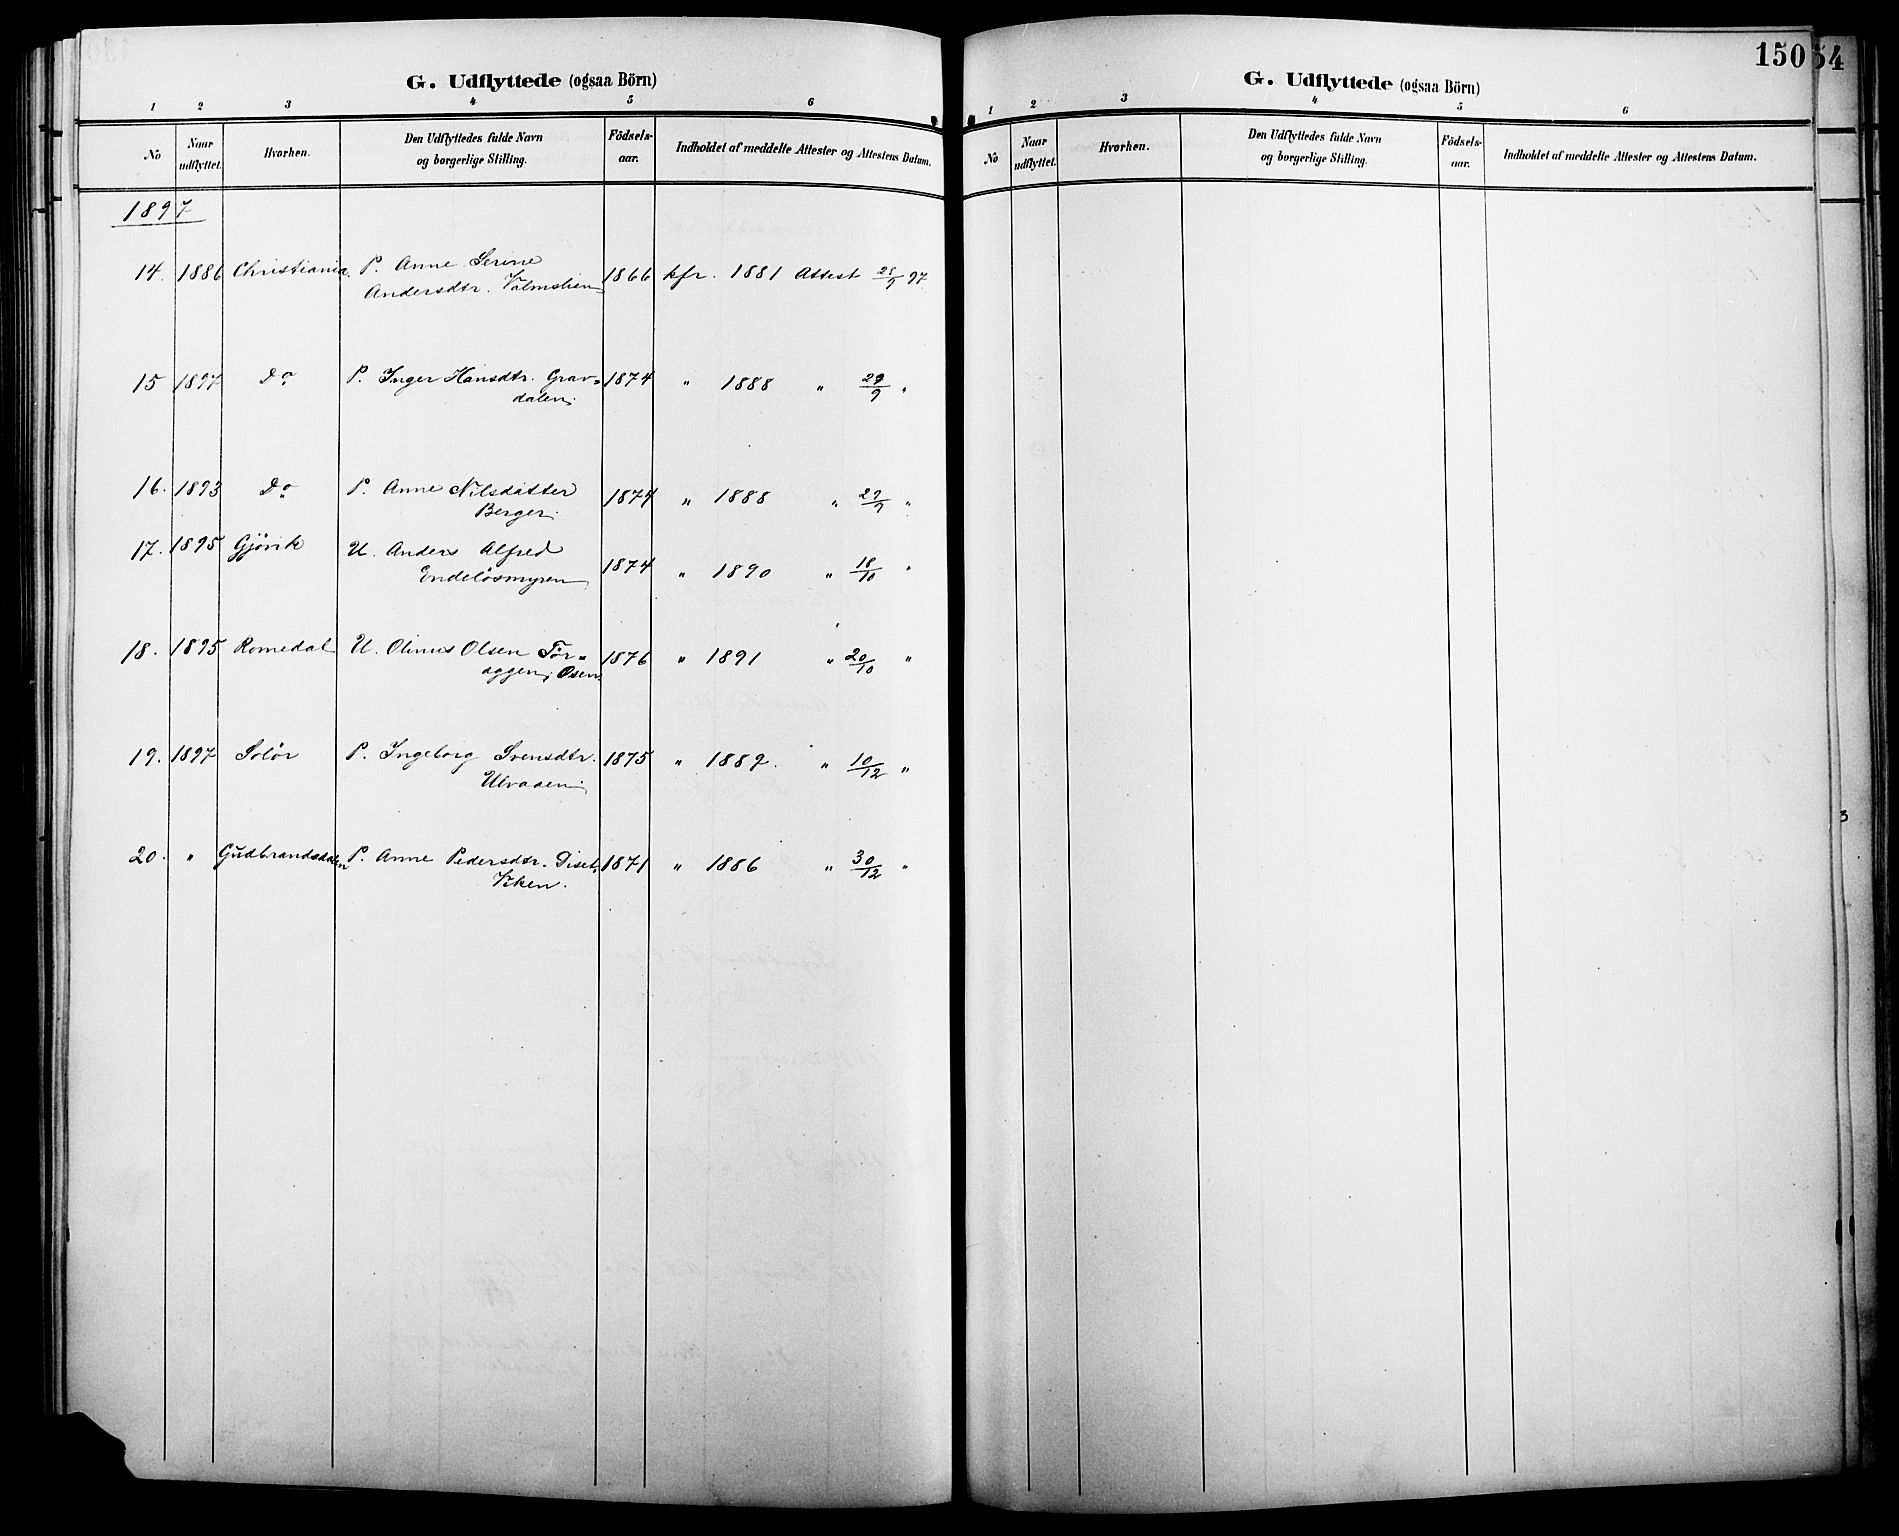 G. Udflyttede (ogsaa Börn)
1 2 3 4 5 6
No Naar udflyttet. Hvorhen. Den Udflyttedes fulde Navn og borgerlige Stilling. Födsels-aar. Indholdet af meddelte Attester og Attestens Datum.
1897
14. 1886 Christiania P. Anne Serine 1866 kfr. 1881 Attest 28/9 97
Andersdtr.
15 1897 Do P. Inger Hansdtr. Grav= 1874 " 1888 " 29/9 "
dalen.
16. 1893 Do P. Anne Nilsdatter 1874 " 1888 " 29/9 "
Berger.
17. 1895 Gjövik U. Anders Alfred
Endelösmyren 1874 " 1890 " 18/10 "
18. 1895 Romedal U. Olinus Olsen 1876 " 1891 " 20/10 "
Osen.
19. 1897 Solör P. Ingeborg Svensdtr. 1875 " 1889. " 10/12 "
Ulvaaen.
20. " Gudbrandsdalen P. Anne Pedersdtr. Diset, 1871 " 1886 " 30/12 "
Viken.
150
54
G. Udflyttede (ogsaa Börn)
1 2 3 4 5 6
No Naar udflyttet. Hvorhen. Den Udflyttedes fulde Navn og borgerlige Stilling. Födsels-aar. Indholdet af meddelte Attester og Attestens Datum.
3